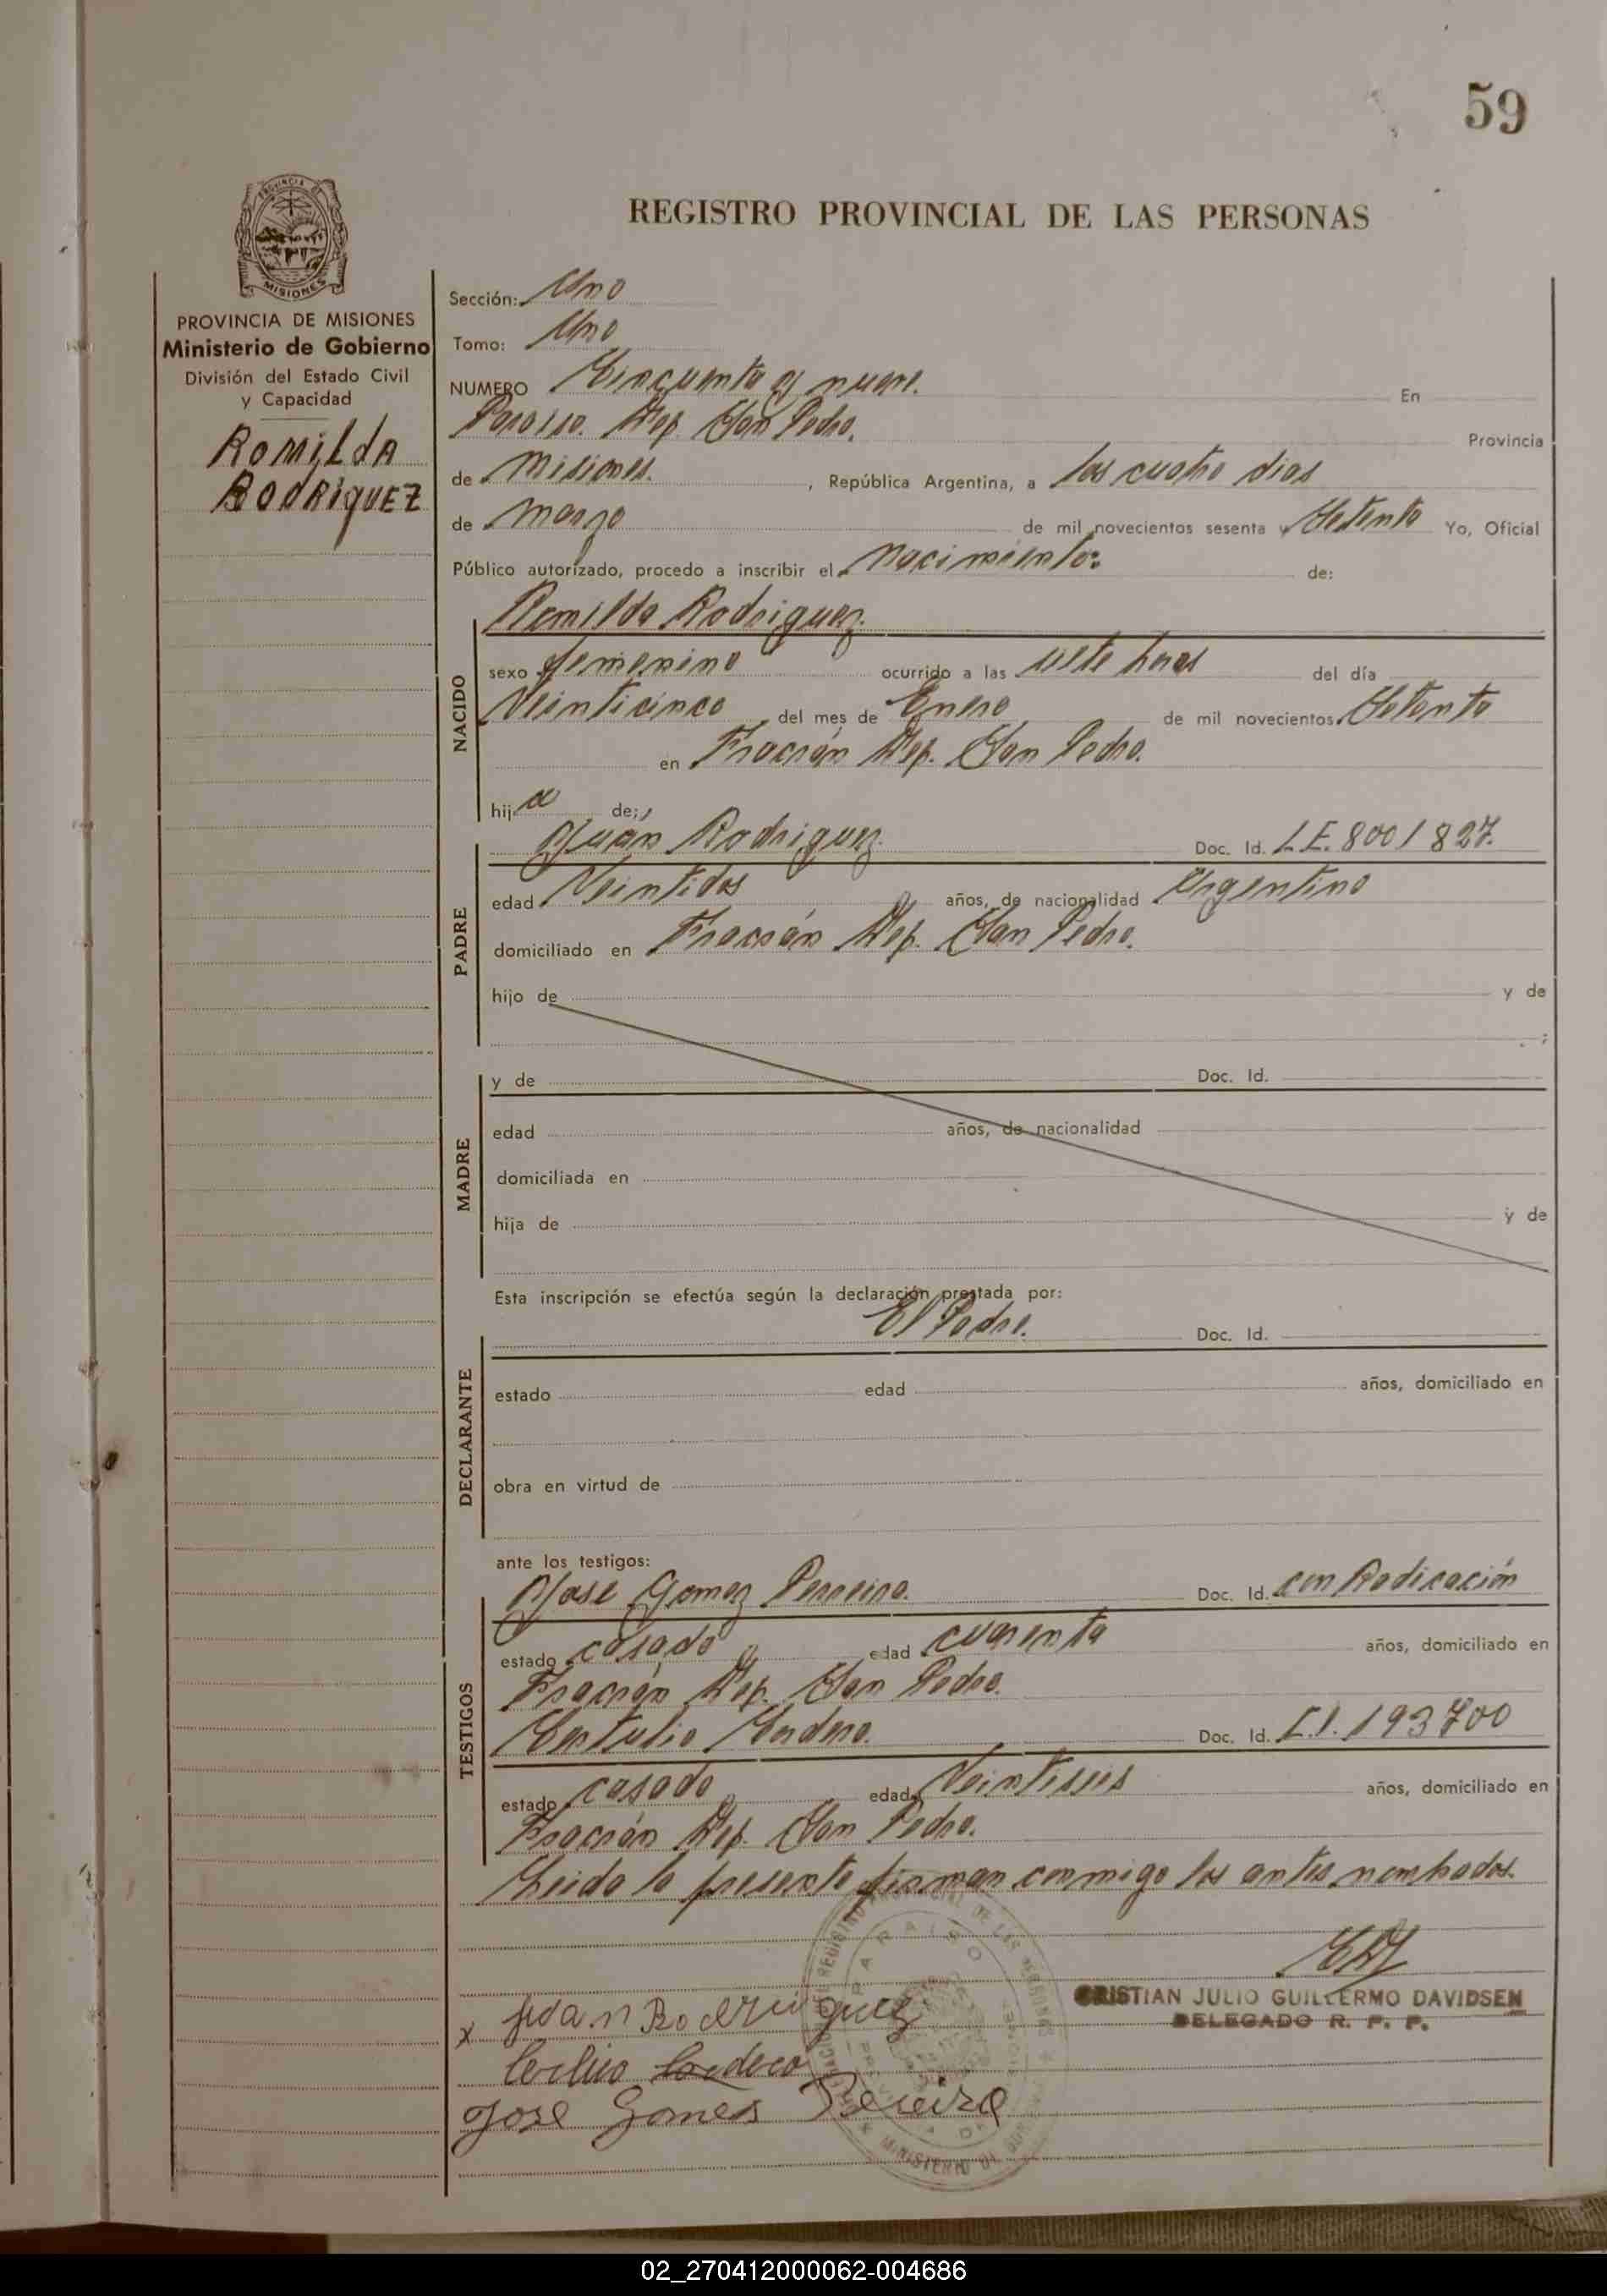 59
REGISTRO PROVINCIAL DE LAS PERSONAS
PROVINCIA DE MISIONES
Ministerio de Gobierno
División del Estado Civil
y Capacidad
Romilda
Rodriguez
Sección: Uno
Tomo: Uno
NUMERO Cincuenta y nueve. En
Paraiso. Dep. San Pedro. Provincia
de Misiones. , República Argentina, a los cuatro dias
de marzo de mil novecientos sesenta y Setenta Yo, Oficial
Público autorizado, procedo a inscribir el Nacimiento: de:
Romilda Rodriguez.
NACIDO
sexo femenino ocurrido a las siete horas del día
Veinticinco del mes de Enero de mil novecientos Setenta
en Fracrán Dep. San Pedro.
hija de;
PADRE
Juán Rodriguez. Doc. Id. L.E. 8001827.
edad Veintidos años, de nacionalidad Argentino
domiciliado en Fracrán Dep. San Pedro.
hijo de y de
MADRE
y de Doc. Id.
edad años, de nacionalidad
domiciliada en
hija de y de
Esta inscripción se efectúa según la declaración prestada por:
DECLARANTE
El Padre. Doc. Id.
estado edad años, domiciliado en
obra en virtud de
ante los testigos:
TESTIGOS
Jose Gomez Perreira. Doc. Id. con Radicación
estado casado edad cuarenta años, domiciliado en
Fracrán Dep. San Pedro.
Doc. Id. 193700
estado casado edad Veintiseis años, domiciliado en
Fracrán Dep. San Pedro.
Leida la presente firman conmigo los antes nombrados.
CRISTIAN JULIO GUILLERMO DAVIDSEN
DELEGADO R. P. P.
x Juan Rodriguez
Jose Gomes Pereira
PARAISO
MINISTERIO DE
02_270412000062-004686